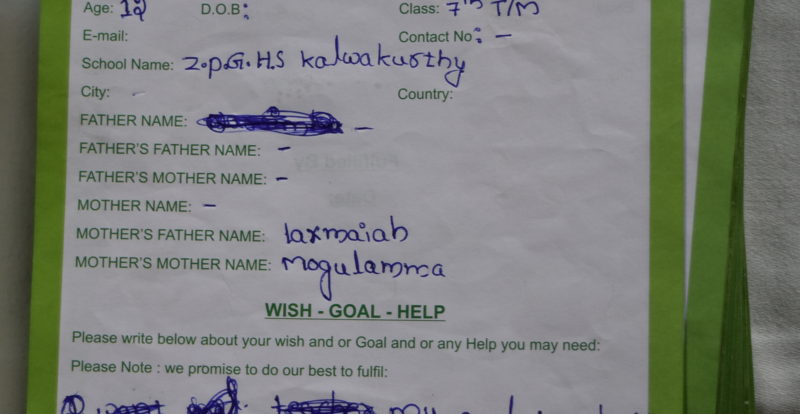 Age: 12 D.O.B: Class: 7th T/M
E-mail: Contact No: -
School Name: Z.p.G.H.S kalwakurthy
City: - Country:
FATHER NAME: -
FATHER'S FATHER NAME: -
FATHER'S MOTHER NAME: -
MOTHER NAME: -
MOTHER'S FATHER NAME: laxmaiah
MOTHER'S MOTHER NAME: mogulamma
WISH - GOAL - HELP
Please write below about your wish and or Goal and or any Help you may need:
Please Note : we promise to do our best to fulfil: